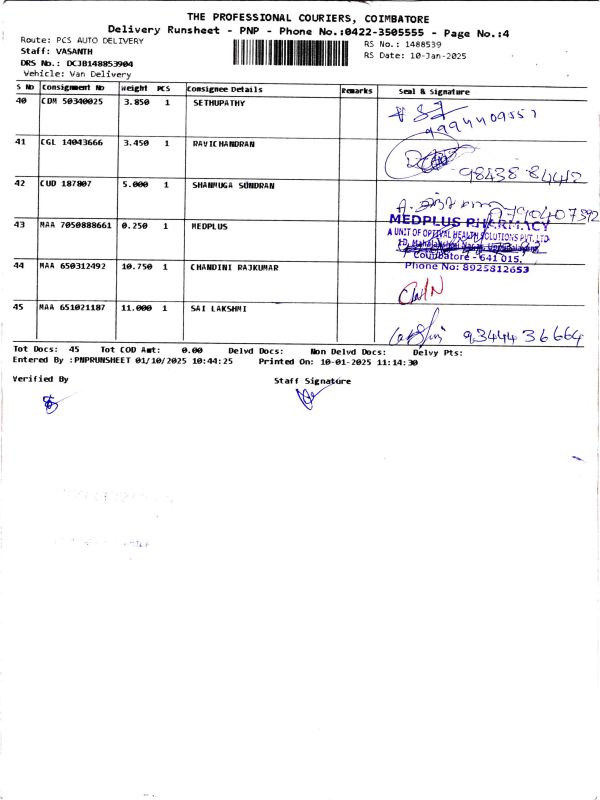 THE PROFESSIONAL COURIERS, COIMBATORE
Delivery Runsheet - PNP - Phone No.:0422-3505555 - Page No.:4
Route: PCS AUTO DELIVERY
RS No.: 1488539
Staff: VASANTH
RS Date: 10-Jan-2025
DRS No.: DCJB148853904
Vehicle: Van Delivery
S No Consignment No Weight PCS Consignee Details Remarks Seal & Signature
40 CDM 50340025 3.850 1 SETHUPATHY
9994409551
41 CGL 14043666 3.450 1 RAVICHANDRAN
98438 84412
42 CUD 187807 5.000 1 SHANMUGA SUNDRAN
7904407392
43 MAA 7050888661 0.250 1 MEDPLUS
MEDPLUS PHARMACY
A UNIT OF OPTIVAL HEALTH SOLUTIONS PVT. LTD.
Coimbatore - 641 015.
Phone No: 8925812653
44 MAA 650312492 10.750 1 CHANDINI RAJKUMAR
45 MAA 651021187 11.000 1 SAI LAKSHMI
93444 36664
Tot Docs: 45 Tot COD Amt: 0.00 Delvd Docs: Non Delvd Docs: Delvy Pts:
Entered By :PNPRUNSHEET 01/10/2025 10:44:25 Printed On: 10-01-2025 11:14:30
Verified By
Staff Signature